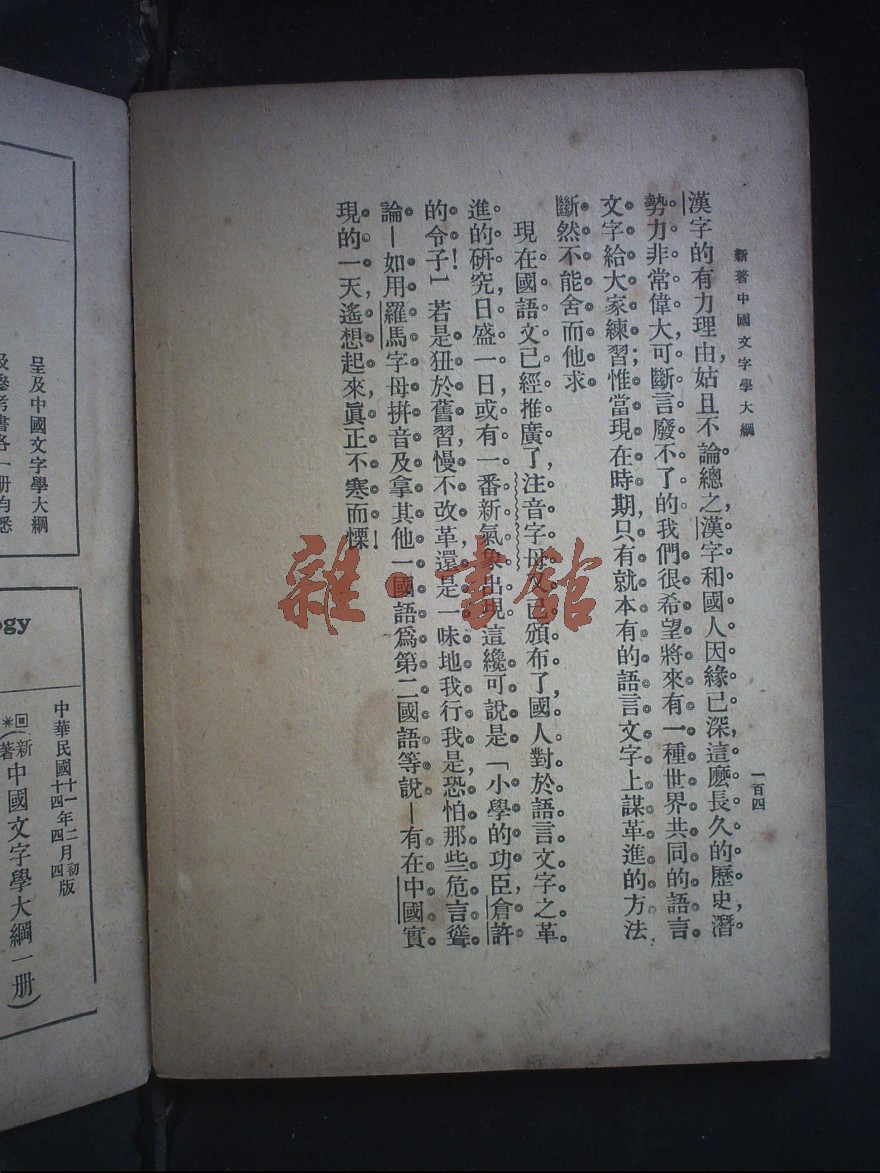 新著中國文字學大綱
一百四
漢字的有力理由,姑且不論,總之,漢字和國人因緣已深,這麽長久的歷史,潛
勢力非常偉大,可斷言廢不了的。我們很希望將來有一種世界共同的語言
文字給大家練習;惟當現在時期,只有就本有的語言文字上謀革進的方法,
斷然不能舍而他求。
現在國語文已經推廣了,注音字母又已頒布了,國人對於語言文字之革
進的研究,日盛一日,或有一番新氣象出現,這纔可說是「小學的功臣,倉許
的令子!」若是狃於舊習,慢不改革,還是一味地我行我是,恐怕那些危言聳
論—如用羅馬字母拼音及拿其他一國語爲第二國語等說—有在中國實
現的一天,遙想起來,眞正不寒而慄!
雜·書館
呈及中國文字學大綱
及參考書各一册均悉
ogy
中華民國十一年二月初版
十四年四
回(新著中國文字學大綱一册)